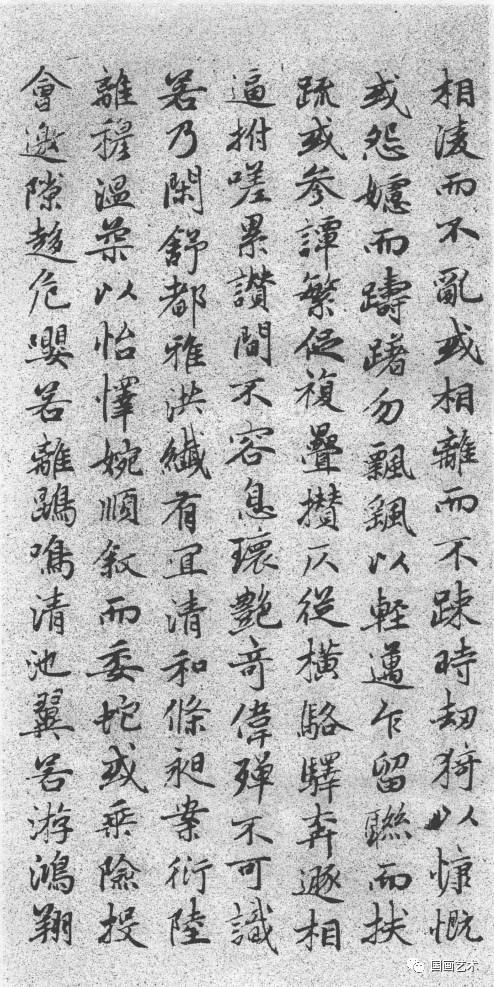 相淩而不亂或相離而不踈時劫猗以慷慨
或怨㜘而躊躇勿飄颻以輕邁乍留聯而扶
疏或參譚繁促複疊攢仄從橫駱驛奔遯相
逼拊嗟累讚間不容息瓌艷奇偉殫不可識
若乃閑舒都雅洪纖有宜清和條昶案衍陸
離穆溫柔以怡懌婉順叙而委蛇或乘險投
會邀隙趍危嚶若離鵾鳴清池翼若游鴻翔
国画艺术